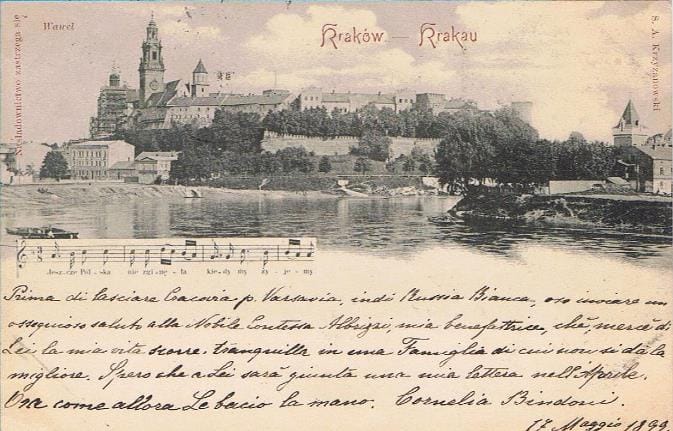 Wawel
Kraków — Krakau
Naśladownictwo zastrzega się
S. A. Krzyżanowski
Jeszcze Pol - ska nie zgi - nę - ła kie - dy my ży - je - my
Prima di lasciare Cracovia p. Varsavia, indi Russia Bianca, oso inviare un
ossequioso saluto alla Nobile Contessa Albrizzi, mia benefattrice, chè mercè di
Lei la mia vita scorre tranquilla in una Famiglia di cui non si dà la
migliore. Spero che a Lei sarà giunta una mia lettera nell'Aprile.
Ora come allora Le bacio la mano. Cornelia Bindoni.
17 Maggio 1899